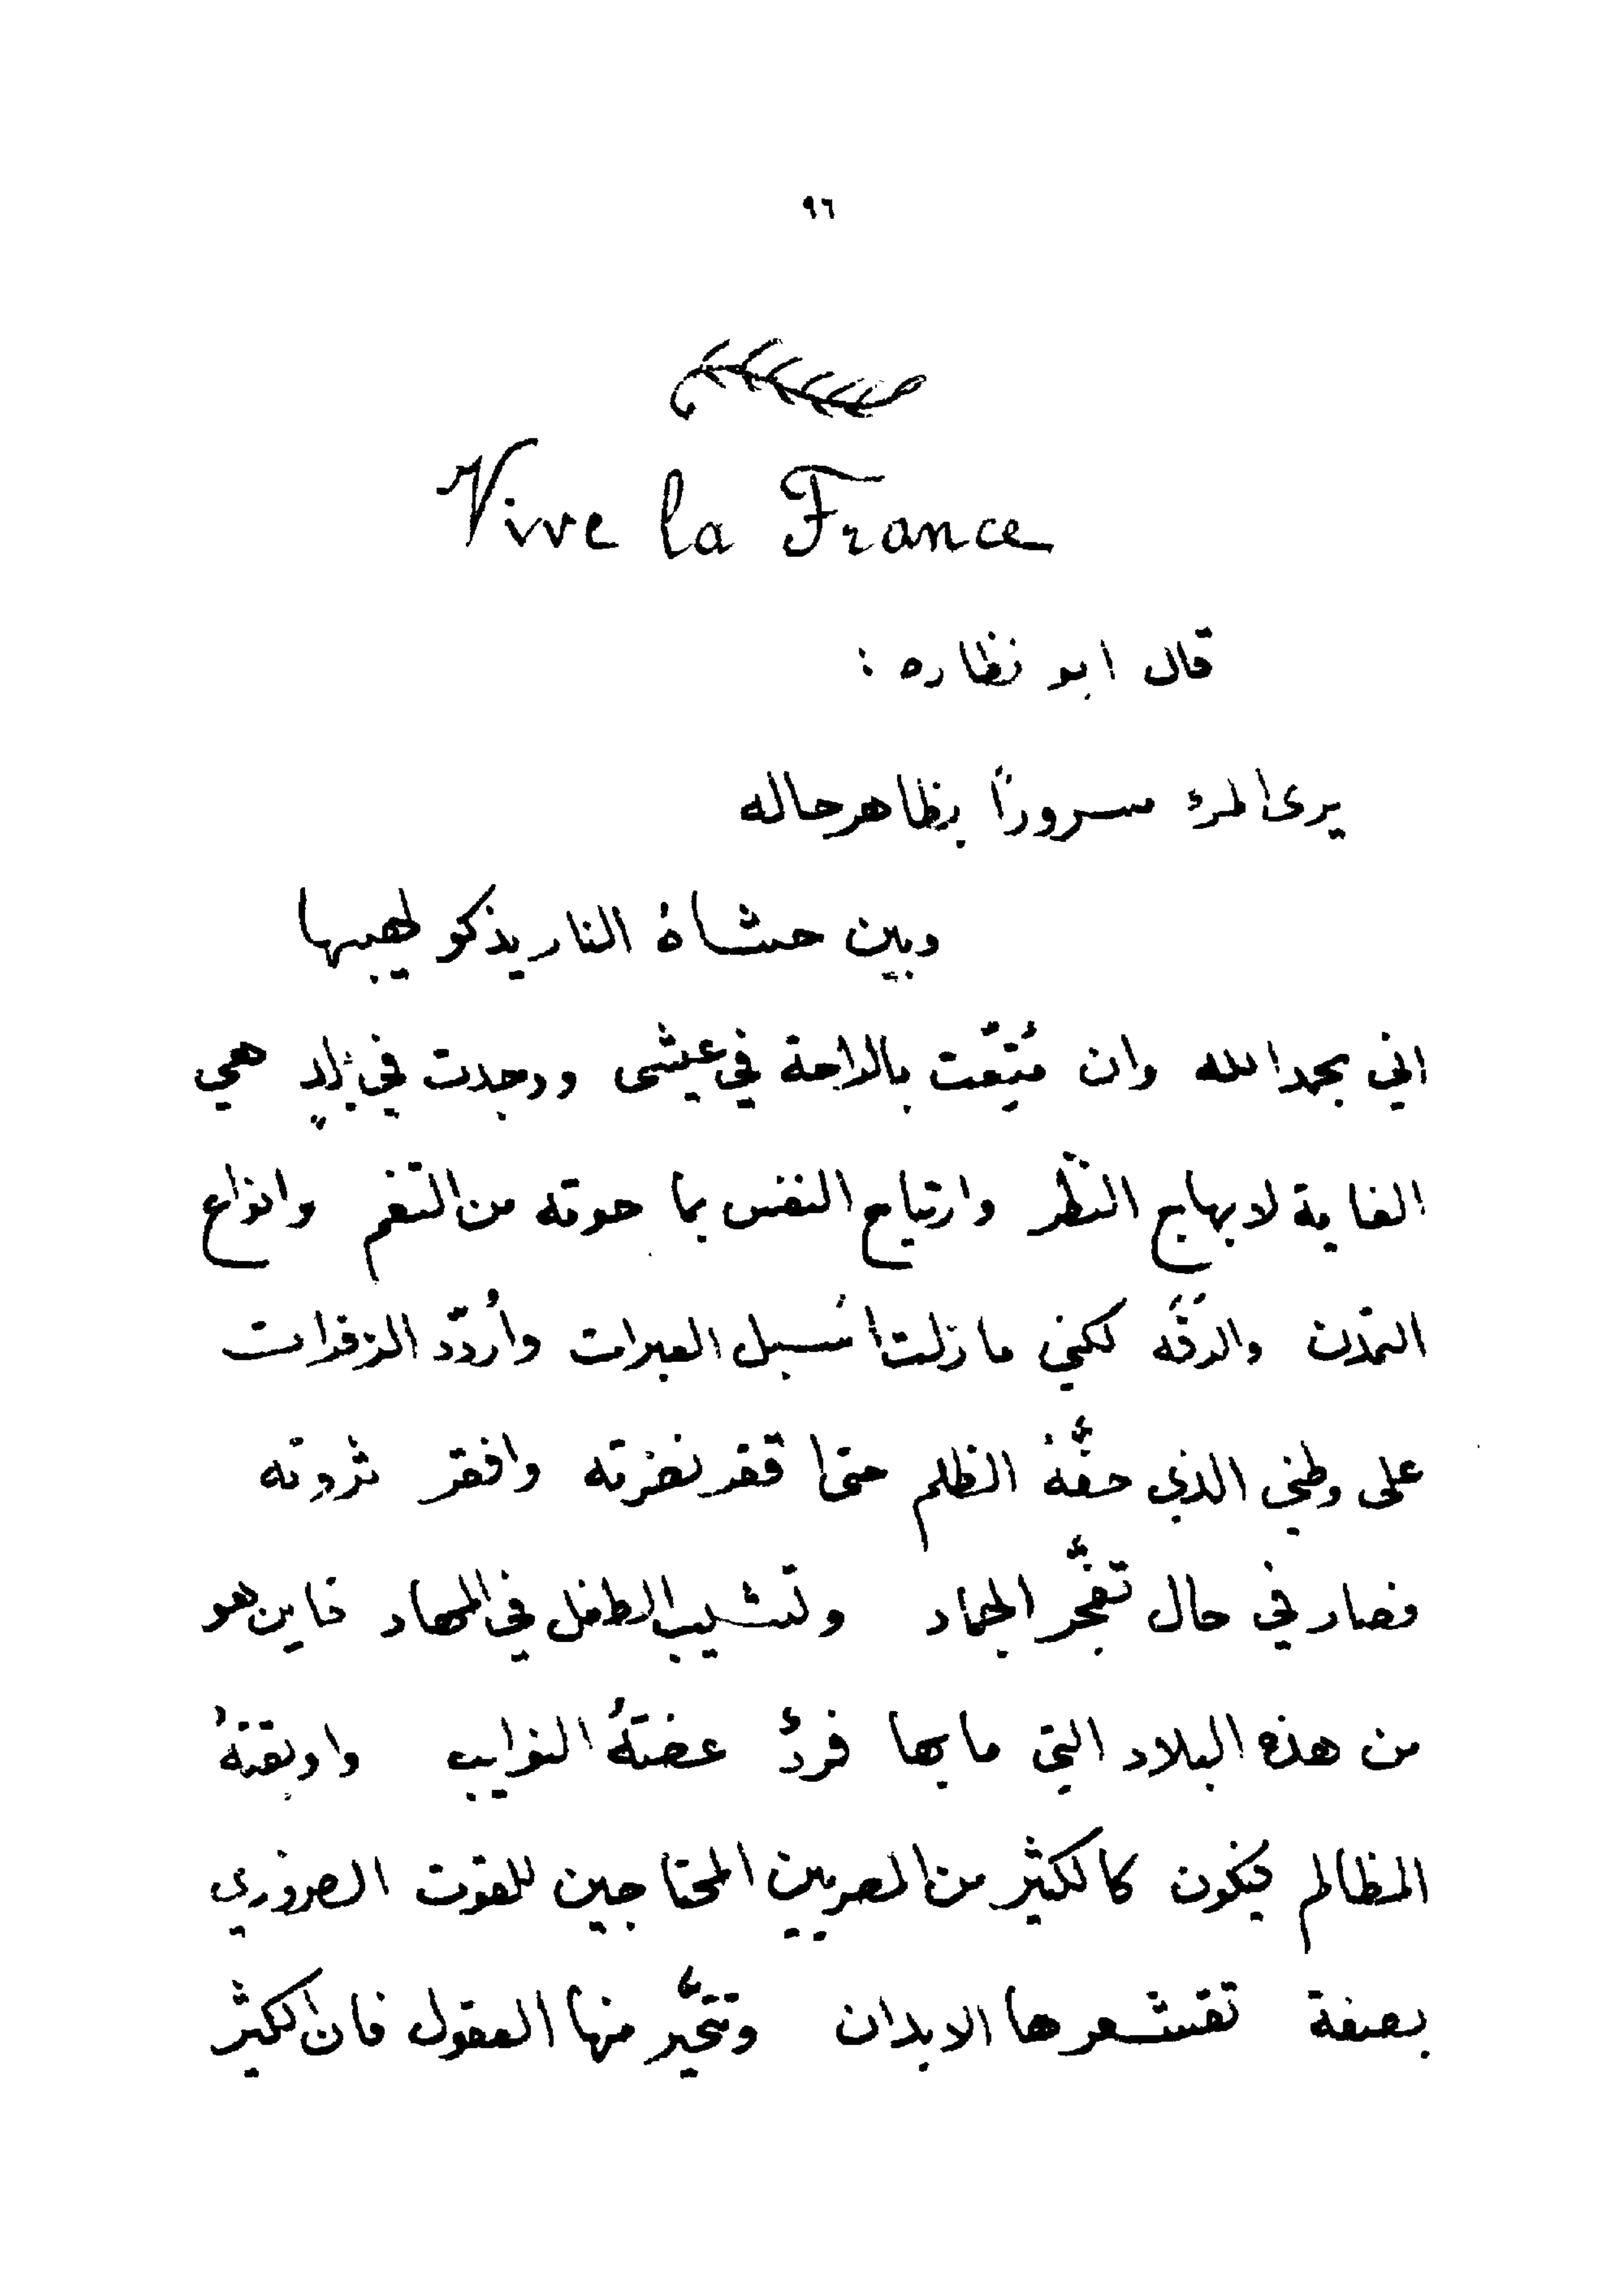 ٩٦
Vive la France
قال ابو نظاره :
يرى المرء مسرورًا بظاهر حاله
وبين حشاهُ النار يذكو لهيبها
اني بحمد الله وان مُتِّعت بالراحة في عيشى ووجدت في بلادٍ هي
الغاية لابهاج النظر وارتياح النفس بما حوته من النغم وانواع
التمدّن والرقّه لكني مازلت اُسبل العبرات واُردّد الزفرات
على وطني الذي حفَّهُ الظلم حتى اقفر نضرته وافقر ثروته
فصار في حال تفجّر الجماد وتشيب الطفل في المهاد فاين هو
من هذه البلاد التي ما بها فردٌ عضتهُ النوايب واوبقتهُ
المظالم فيكون كالكثير من المصريين المحتاجين للقوت الضروري
بصفة تقشعر ها الابدان وتتحيَّر منها العقول فان الكثير